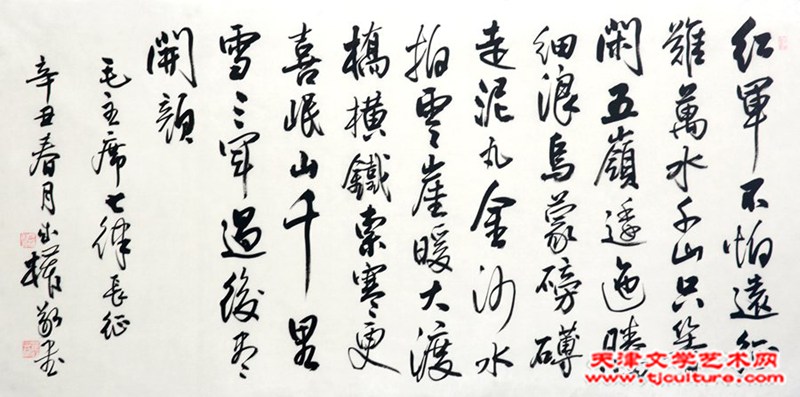 紅軍不怕遠征
難萬水千山只等
閑五嶺逶迤騰
細浪烏蒙磅礴
走泥丸金沙水
拍雲崖暖大渡
橋橫鐵索寒更
喜岷山千里
雪三軍過後盡
開顏
毛主席七律長征
辛丑春月權敬書
天津文学艺术网
www.tjculture.com